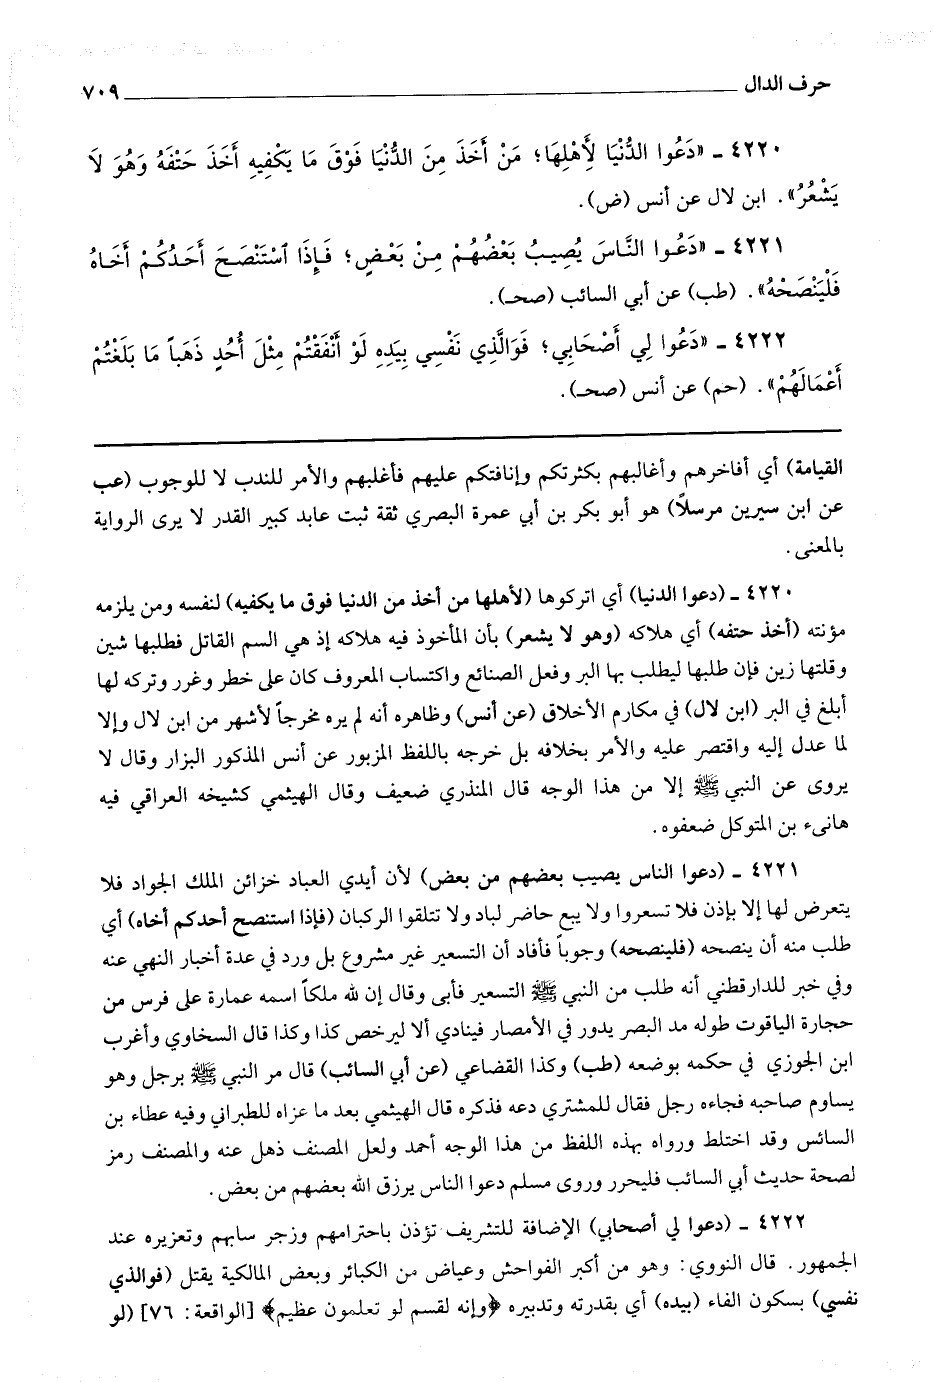 حرف الدال ٧٠٩
٤٢٢٠ ـ «دَعُوا الدُّنْيَا لِأَهْلِهَا؛ مَنْ أَخَذَ مِنَ الدُّنْيَا فَوْقَ مَا يَكْفِيهِ أَخَذَ حَتْفَهُ وَهُوَ لَا
يَشْعُرُ». ابن لال عن أنس (ض).
٤٢٢١ ـ «دَعُوا النَّاسَ يُصِيبُ بَعْضُهُمْ مِنْ بَعْضٍ؛ فَإِذَا ٱسْتَنْصَحَ أَحَدُكُمْ أَخَاهُ
فَلْيَنْصَحْهُ». (طب) عن أبي السائب (صحـ).
٤٢٢٢ ـ «دَعُوا لِي أَصْحَابِي؛ فَوَالَّذِي نَفْسِي بِيَدِهِ لَوْ أَنْفَقْتُمْ مِثْلَ أُحُدٍ ذَهَباً مَا بَلَغْتُمْ
أَعْمَالَهُمْ». (حم) عن أنس (صحـ).
القيامة) أي أفاخرهم وأغالبهم بكثرتكم وإنافتكم عليهم فأغلبهم والأمر للندب لا للوجوب (عب
عن ابن سيرين مرسلاً) هو أبو بكر بن أبي عمرة البصري ثقة ثبت عابد كبير القدر لا يرى الرواية
بالمعنى.
٤٢٢٠ ـ (دعوا الدنيا) أي اتركوها (لأهلها من أخذ من الدنيا فوق ما يكفيه) لنفسه ومن يلزمه
مؤنته (أخذ حتفه) أي هلاكه (وهو لا يشعر) بأن المأخوذ فيه هلاكه إذ هي السم القاتل فطلبها شين
وقلتها زين فإن طلبها ليطلب بها البر وفعل الصنائع واكتساب المعروف كان على خطر وغرر وتركه لها
أبلغ في البر (ابن لال) في مكارم الأخلاق (عن أنس) وظاهره أنه لم يره مخرجاً لأشهر من ابن لال وإلا
لما عدل إليه واقتصر عليه والأمر بخلافه بل خرجه باللفظ المزبور عن أنس المذكور البزار وقال لا
يروى عن النبي ﷺ إلا من هذا الوجه قال المنذري ضعيف وقال الهيثمي كشيخه العراقي فيه
هانىء بن المتوكل ضعفوه.
٤٢٢١ ـ (دعوا الناس يصيب بعضهم من بعض) لأن أيدي العباد خزائن الملك الجواد فلا
يتعرض لها إلا بإذن فلا تسعروا ولا يبع حاضر لباد ولا تتلقوا الركبان (فإذا استنصح أحدكم أخاه) أي
طلب منه أن ينصحه (فلينصحه) وجوباً فأفاد أن التسعير غير مشروع بل ورد في عدة أخبار النهي عنه
وفي خبر للدارقطني أنه طلب من النبي ﷺ التسعير فأبى وقال إن لله ملكاً اسمه عمارة على فرس من
حجارة الياقوت طوله مد البصر يدور في الأمصار فينادي ألا ليرخص كذا وكذا قال السخاوي وأغرب
ابن الجوزي في حكمه بوضعه (طب) وكذا القضاعي (عن أبي السائب) قال مر النبي ﷺ برجل وهو
يساوم صاحبه فجاءه رجل فقال للمشتري دعه فذكره قال الهيثمي بعد ما عزاه للطبراني وفيه عطاء بن
السائس وقد اختلط ورواه بهذه اللفظ من هذا الوجه أحمد ولعل المصنف ذهل عنه والمصنف رمز
لصحة حديث أبي السائب فليحرر وروى مسلم دعوا الناس يرزق الله بعضهم من بعض.
٤٢٢٢ ـ (دعوا لي أصحابي) الإضافة للتشريف تؤذن باحترامهم وزجر سابهم وتعزيره عند
الجمهور. قال النووي: وهو من أكبر الفواحش وعياض من الكبائر وبعض المالكية يقتل (فوالذي
نفسي) بسكون الفاء (بيده) أي بقدرته وتدبيره ﴿وإنه لقسم لو تعلمون عظيم﴾ [الواقعة: ٧٦] (لو